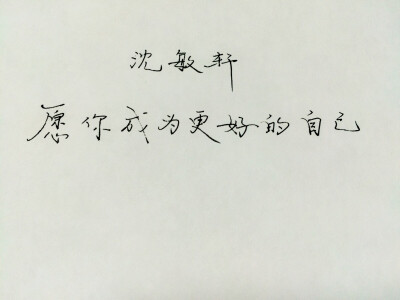 沈敏轩
愿你成为更好的自己